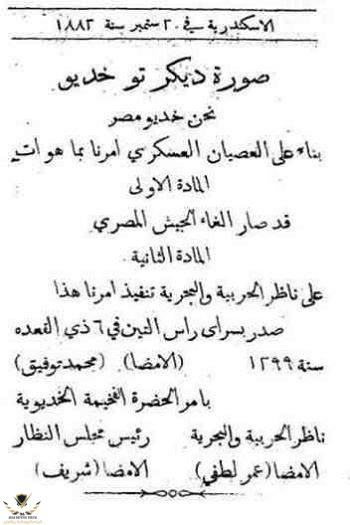 الاسكندرية في ٢٠ ستمبر سنة ١٨٨٢
صورة ديكر تو خديو
نحن خديو مصر
بناء على العصيان العسكري امرنا بما هو ات
المادة الاولى
قد صار الغاء الجيش المصري
المادة الثانية
على ناظر الحربية والبحرية تنفيذ امرنا هذا
صدر بسراى راس التين في ٦ ذي القعده
سنة ١٢٩٩ (الامضا) (محمد توفيق)
بامر الحضرة الفخيمة الخديوية
ناظر الحربية والبحرية رئيس مجلس النظار
الامضا (عمر لطفي) الامضا (شريف)